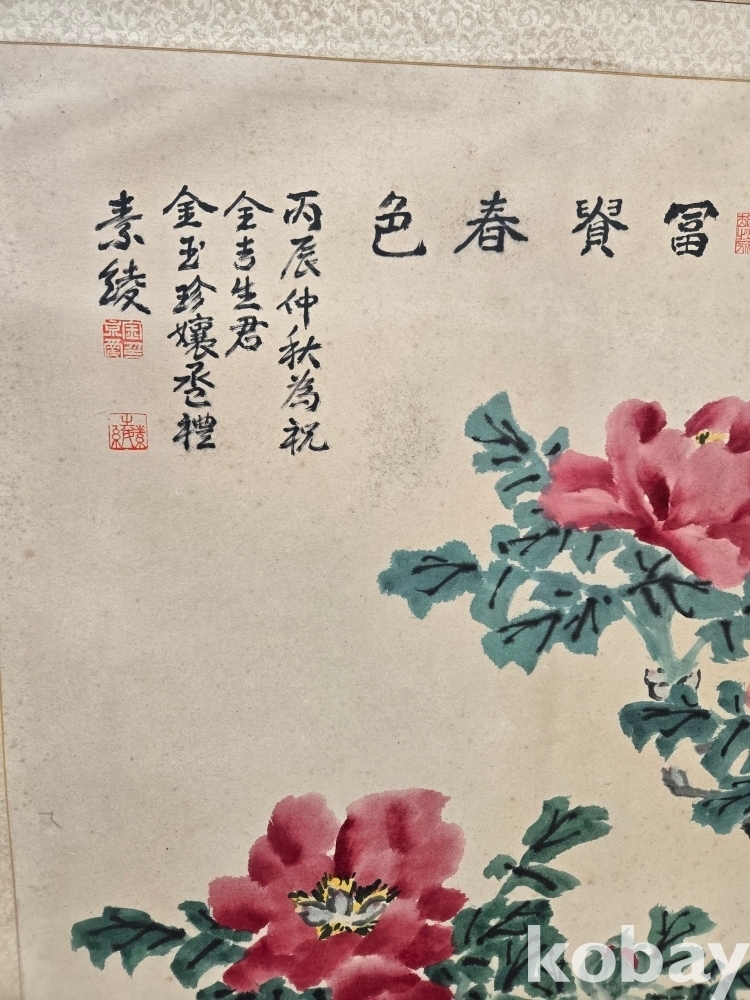 富貴春色
丙辰仲秋為祝
全吉生君
金玉珍孃巹禮
素綾
kobay